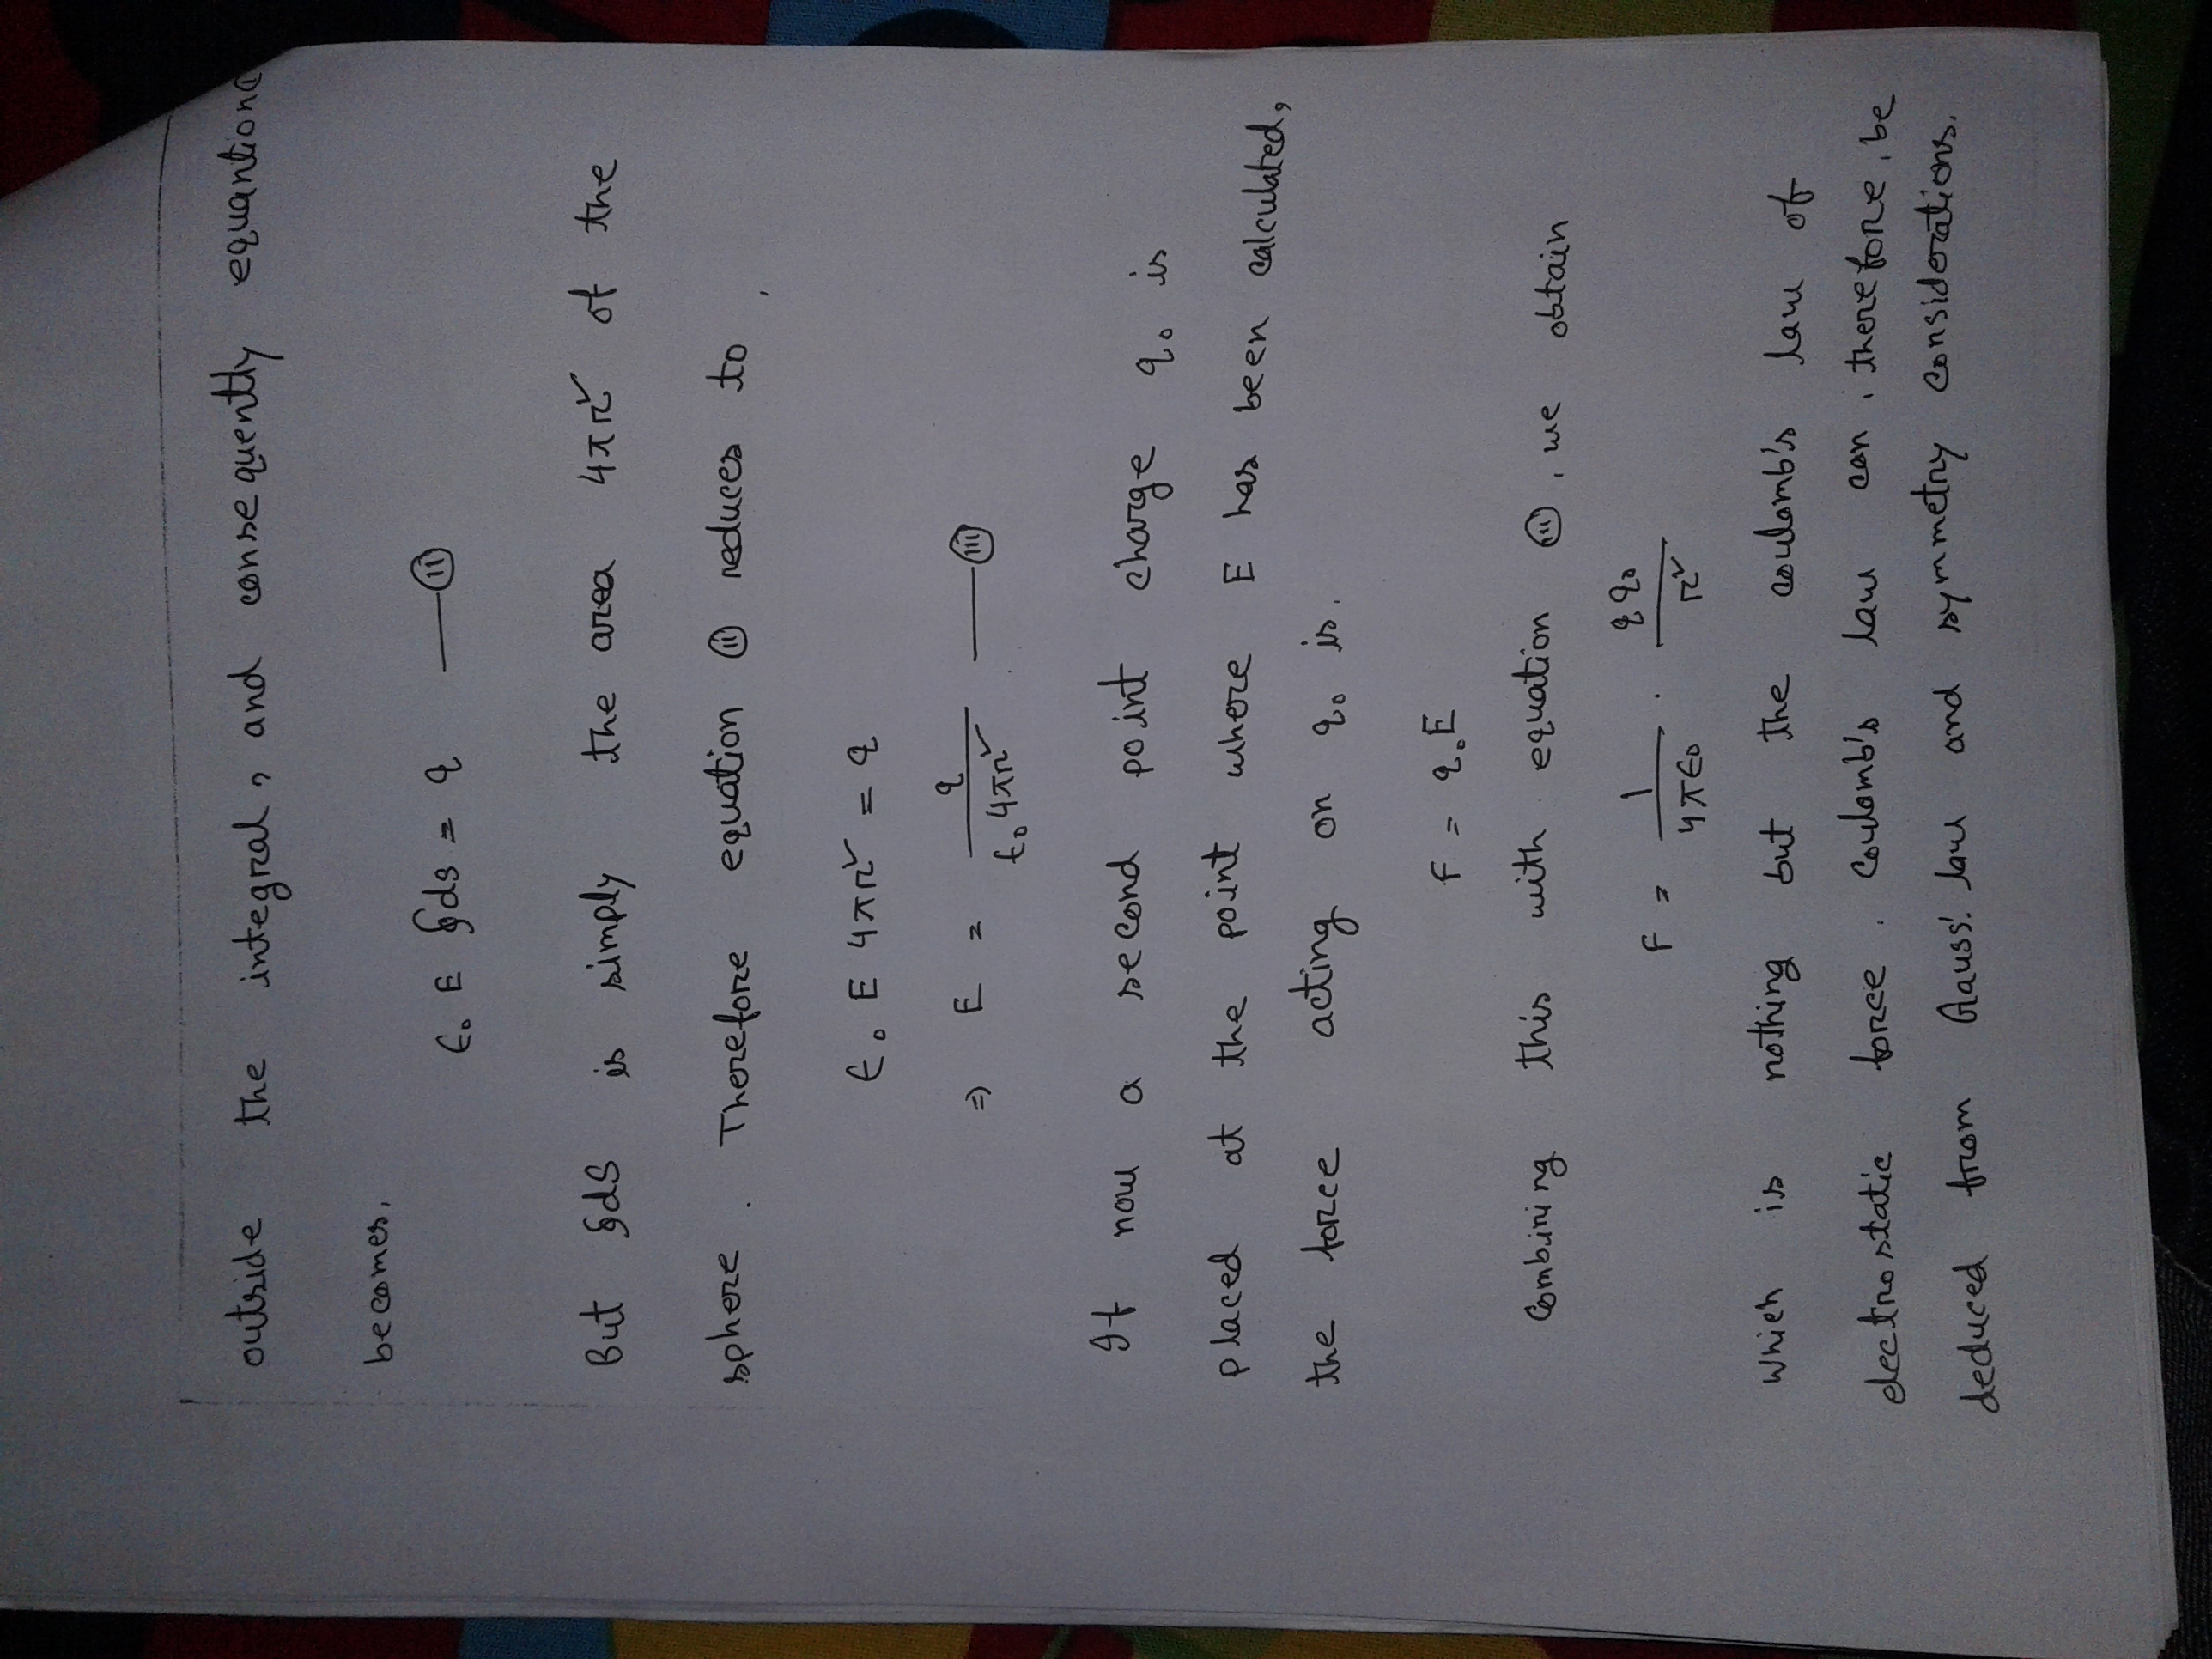 outside the integral, and consequently equantion
becomes,
ϵ₀ E ∮ds = q —(ii)
But ∮ds is simply the area 4πr² of the
sphere. Therefore equation (ii) reduces to,
ϵ₀ E 4πr² = q
⇒ E = q / ϵ₀ 4πr² —(iii)
If now a second point charge q₀ is
placed at the point where E has been calculated,
the force acting on q₀ is,
F = q₀E
Combining this with equation (iii), we obtain
F = 1 / 4πϵ₀ · q q₀ / r²
which is nothing but the coulomb's law of
electrostatic force. Coulomb's law can, therefore, be
deduced from Gauss' law and symmetry considerations.